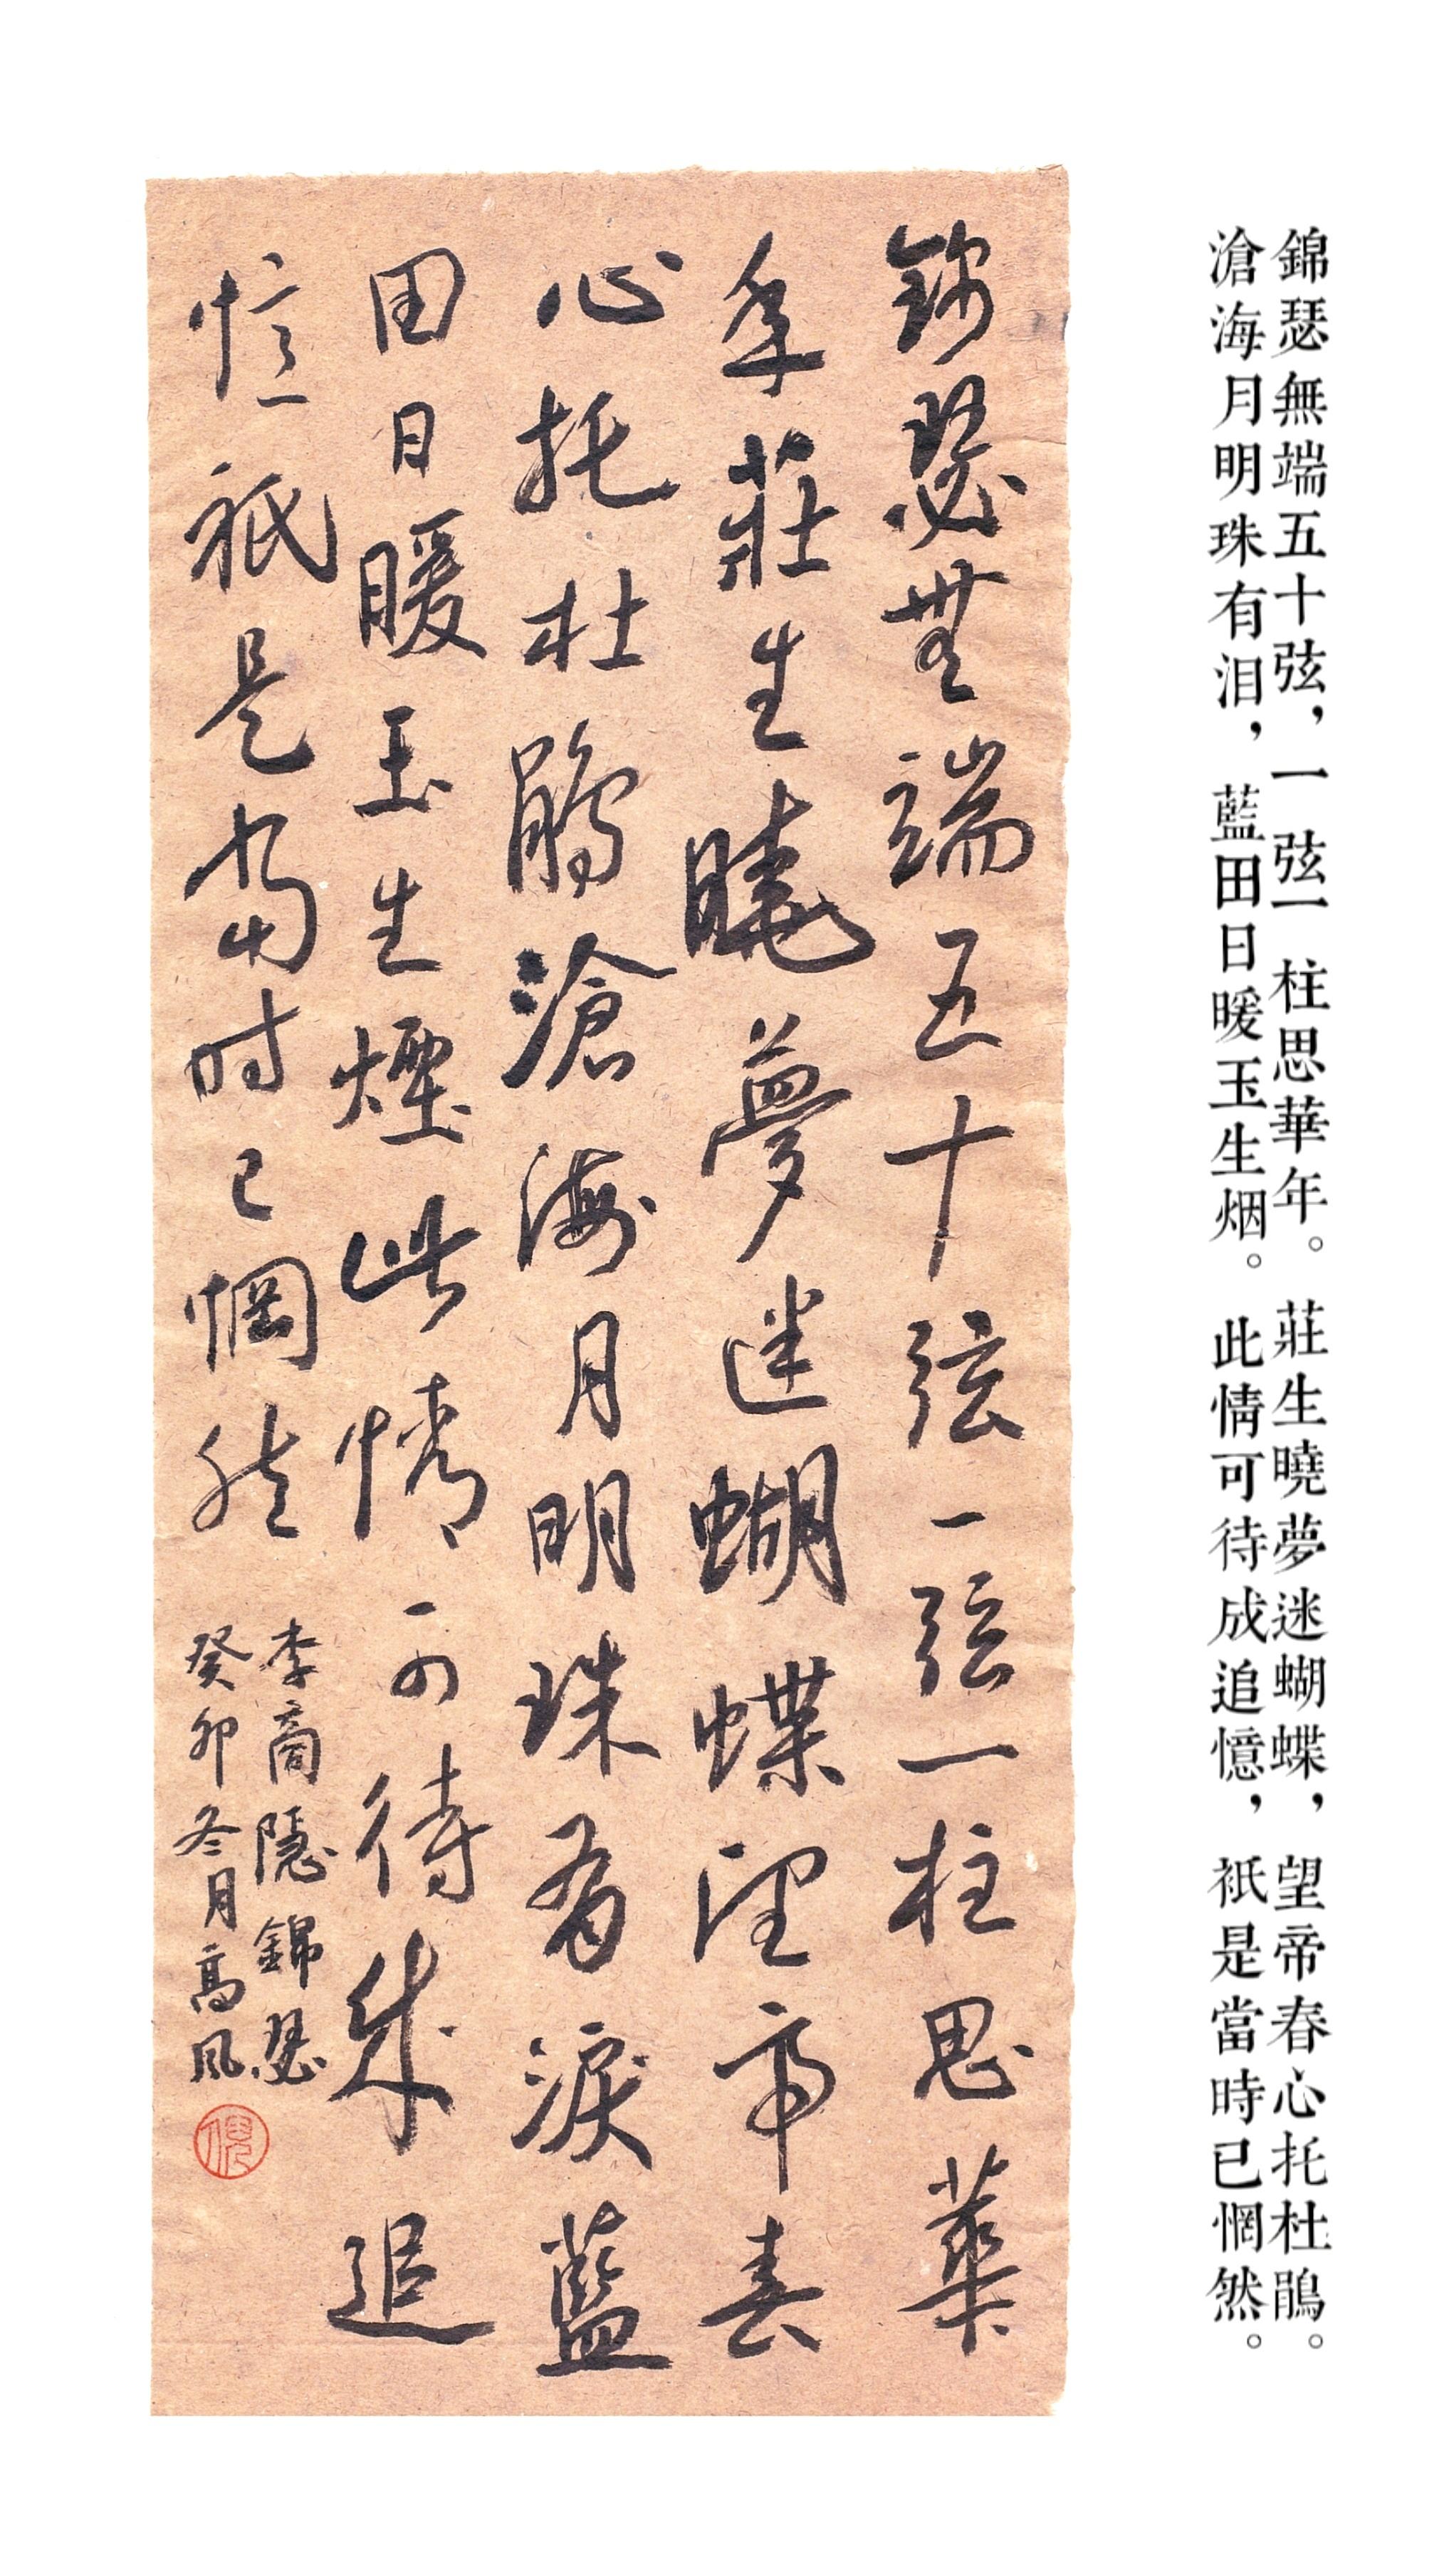 錦瑟無端五十弦，一弦一柱思華年。莊生曉夢迷蝴蝶，望帝春心托杜鵑。
滄海月明珠有泪，藍田日暖玉生烟。此情可待成追憶，衹是當時已惘然。
錦瑟無端五十弦一弦一柱思華
年莊生曉夢迷蝴蝶望帝春
心托杜鵑滄海月明珠有淚藍
田日暖玉生煙此情可待成追
憶祇是當時已惘然
李商隱錦瑟
癸卯冬月高風